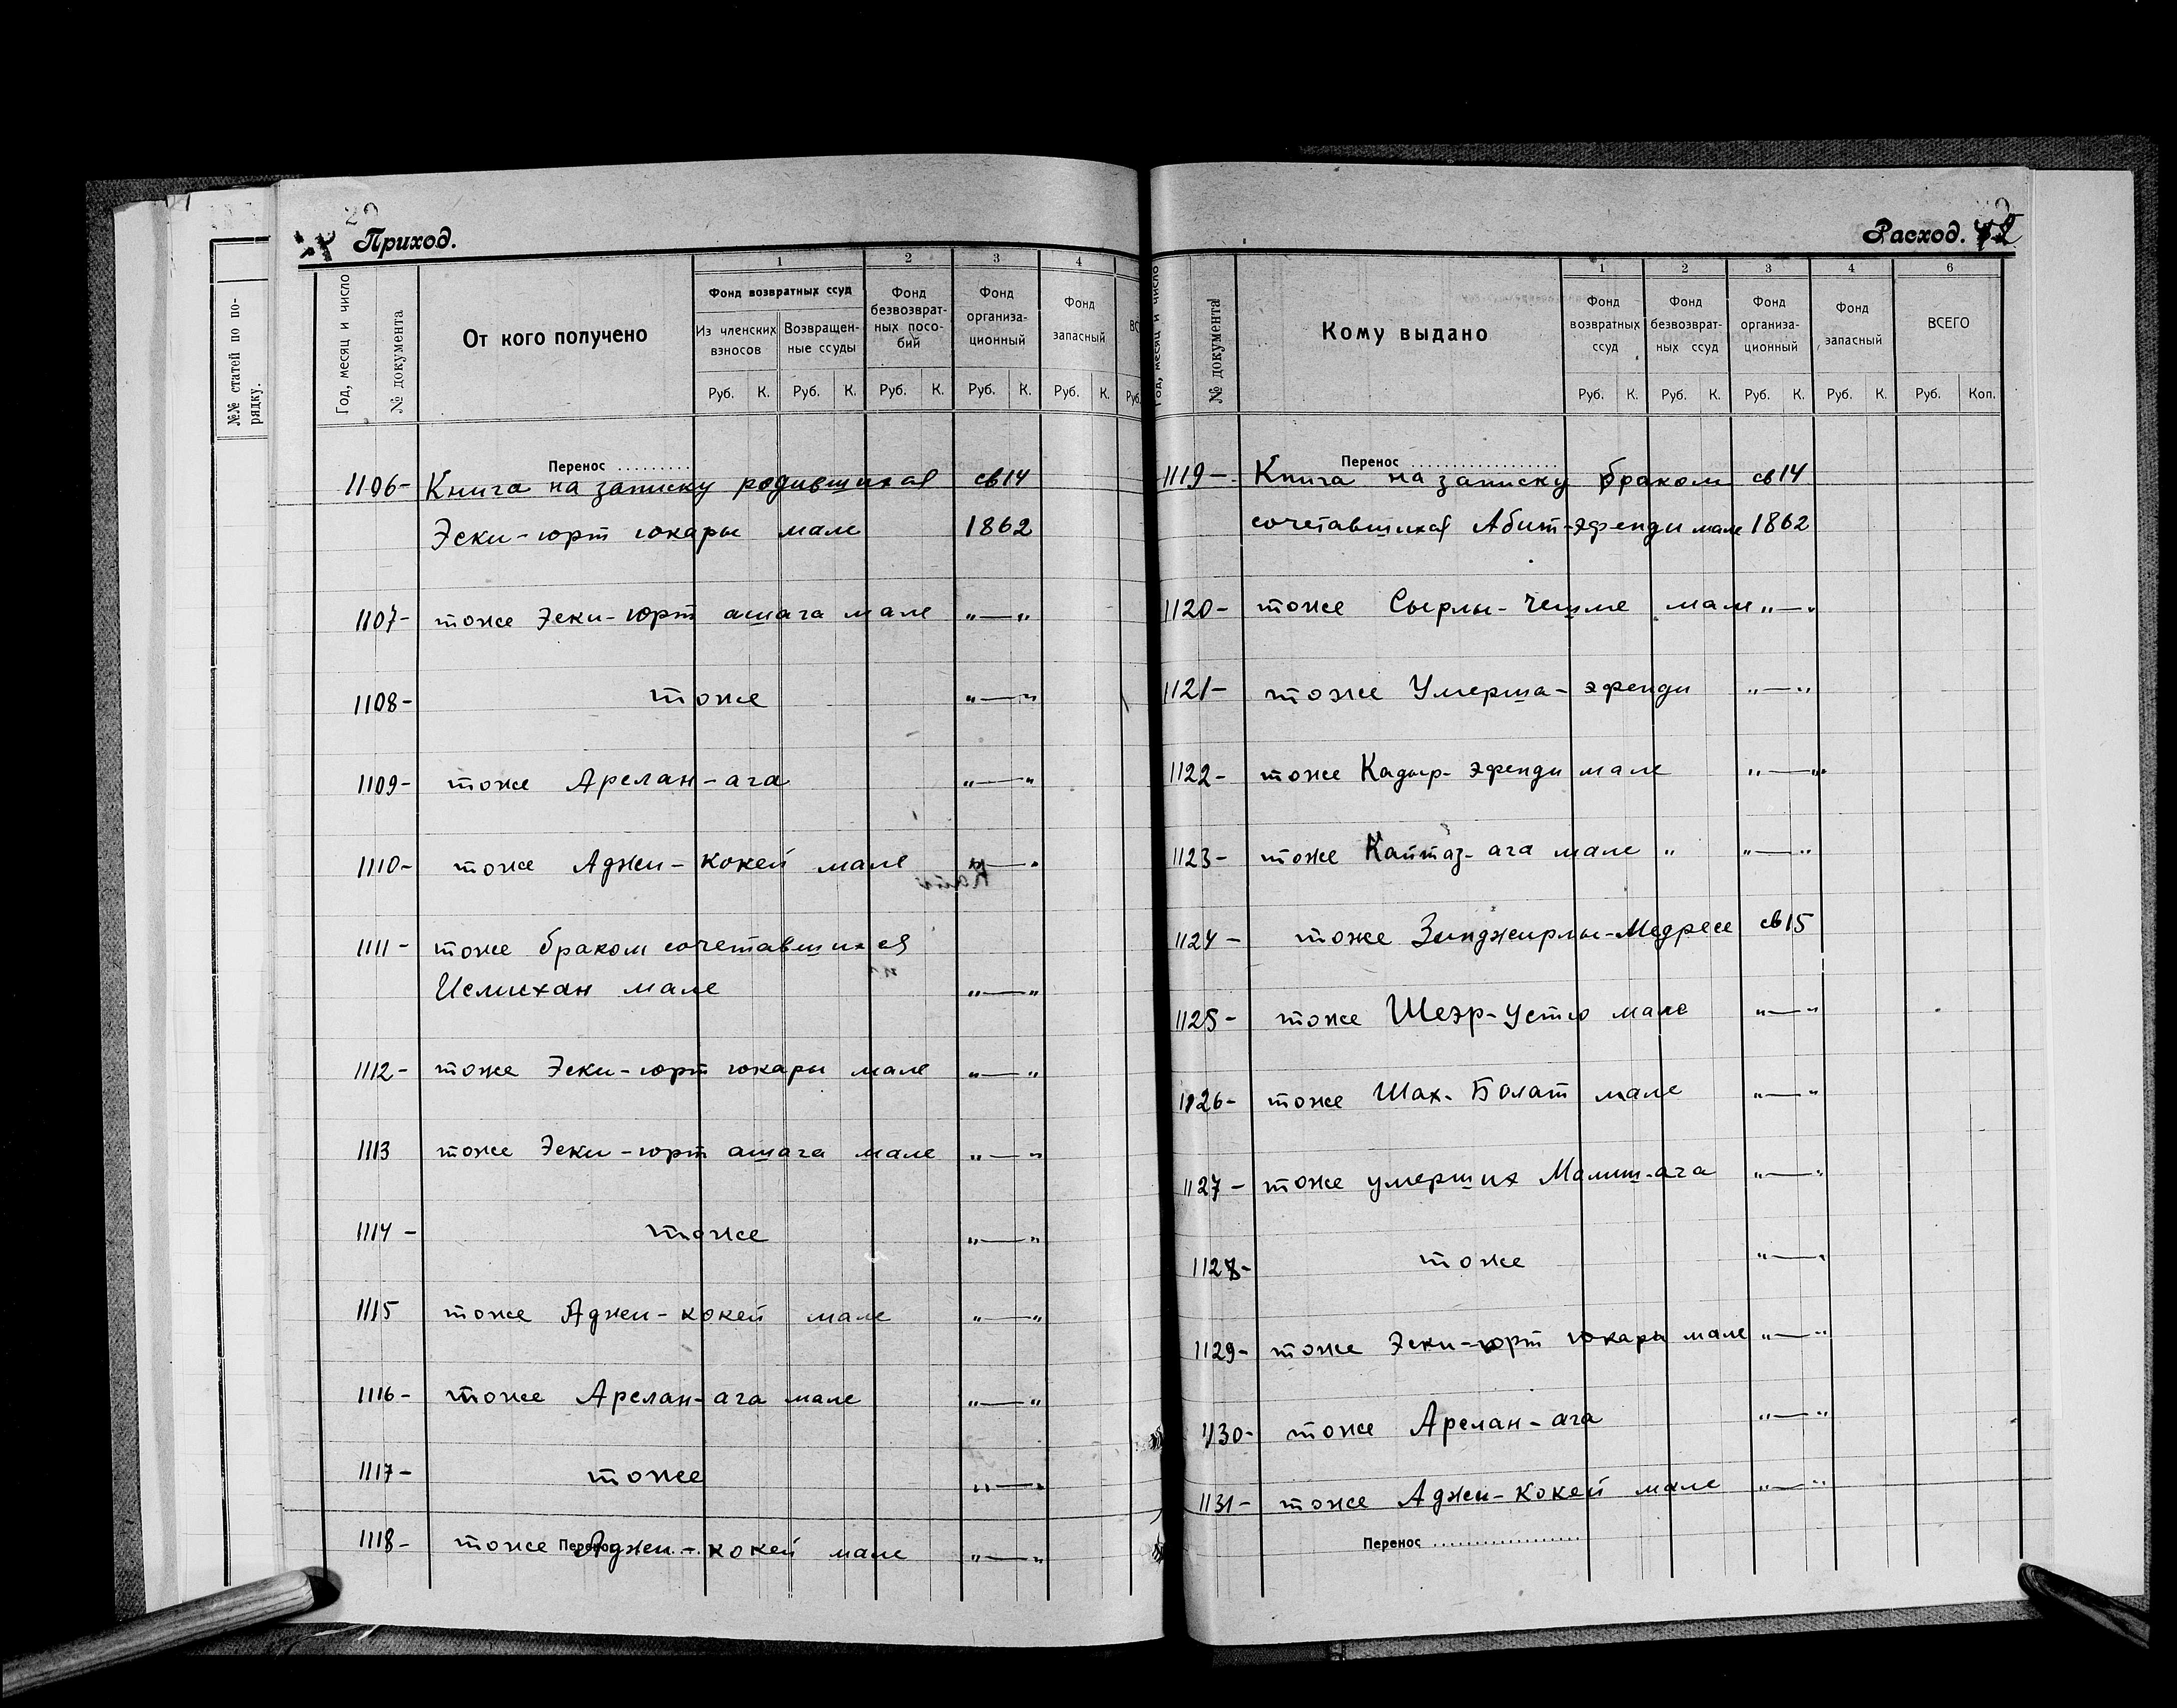 Приход.
№№ статей по по-
рядку.
Год, месяц и число
№ документа
От кого получено
1
Фонд возвратных ссуд
Из членских
взносов
Возвращен-
ные ссуды
2
Фонд
безвозврат-
ных посо-
бий
3
Фонд
организа-
ционный
4
Фонд
запасный
Руб. К. Руб. К. Руб. К. Руб. К. Руб. К. Руб.
Перенос
1106- Книга на записку родившихся св 14
Эски-юрт юкары мале 1862
1107- тоже Эски-юрт ашага мале „—„
1108- тоже „—„
1109- тоже Арслан-ага „—„
1110- тоже Аджи-кокей мале „—„
1111- тоже браком сочетавшихся
Исмихан мале „—„
1112- тоже Эски-юрт юкары мале „—„
1113 тоже Эски-юрт ашага мале „—„
1114- тоже „—„
1115 тоже Аджи-кокей мале „—„
1116- тоже Арслан-ага мале „—„
1117- тоже „—„
1118- тоже Аджи-кокей мале „—„
Перенос
Расход. 42
Год, месяц и число
№ документа
Кому выдано
1
Фонд
возвратных
ссуд
2
Фонд
безвозврат-
ных ссуд
3
Фонд
организа-
ционный
4
Фонд
запасный
6
ВСЕГО
Руб. К. Руб. К. Руб. К. Руб. К. Руб. Коп.
Перенос
1119- Книга на записку браком св 14
сочетавшихся Абит-эфенди мале 1862
1120- тоже Сырлы-Чешме мале „—„
1121- тоже Умерша-эфенди „—„
1122- тоже Кадыр-эфенди мале „—„
1123- тоже Кайтаз-ага мале „ „—„
1124- тоже Зинджирлы-Медресе св 15
1125- тоже Шеэр-Устю мале „—„
1126- тоже Шах-Болат мале „—„
1127- тоже умерших Малиш-ага „—„
1128- тоже „—„
1129- тоже Эски-юрт юкары мале „—„
1130- тоже Арслан-ага „—„
1131- тоже Аджи-Кокей мале „—„
Перенос